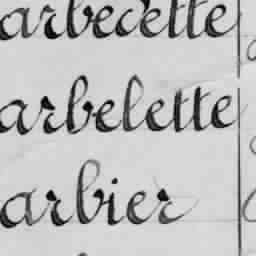 arbecette
arbelette
arbier